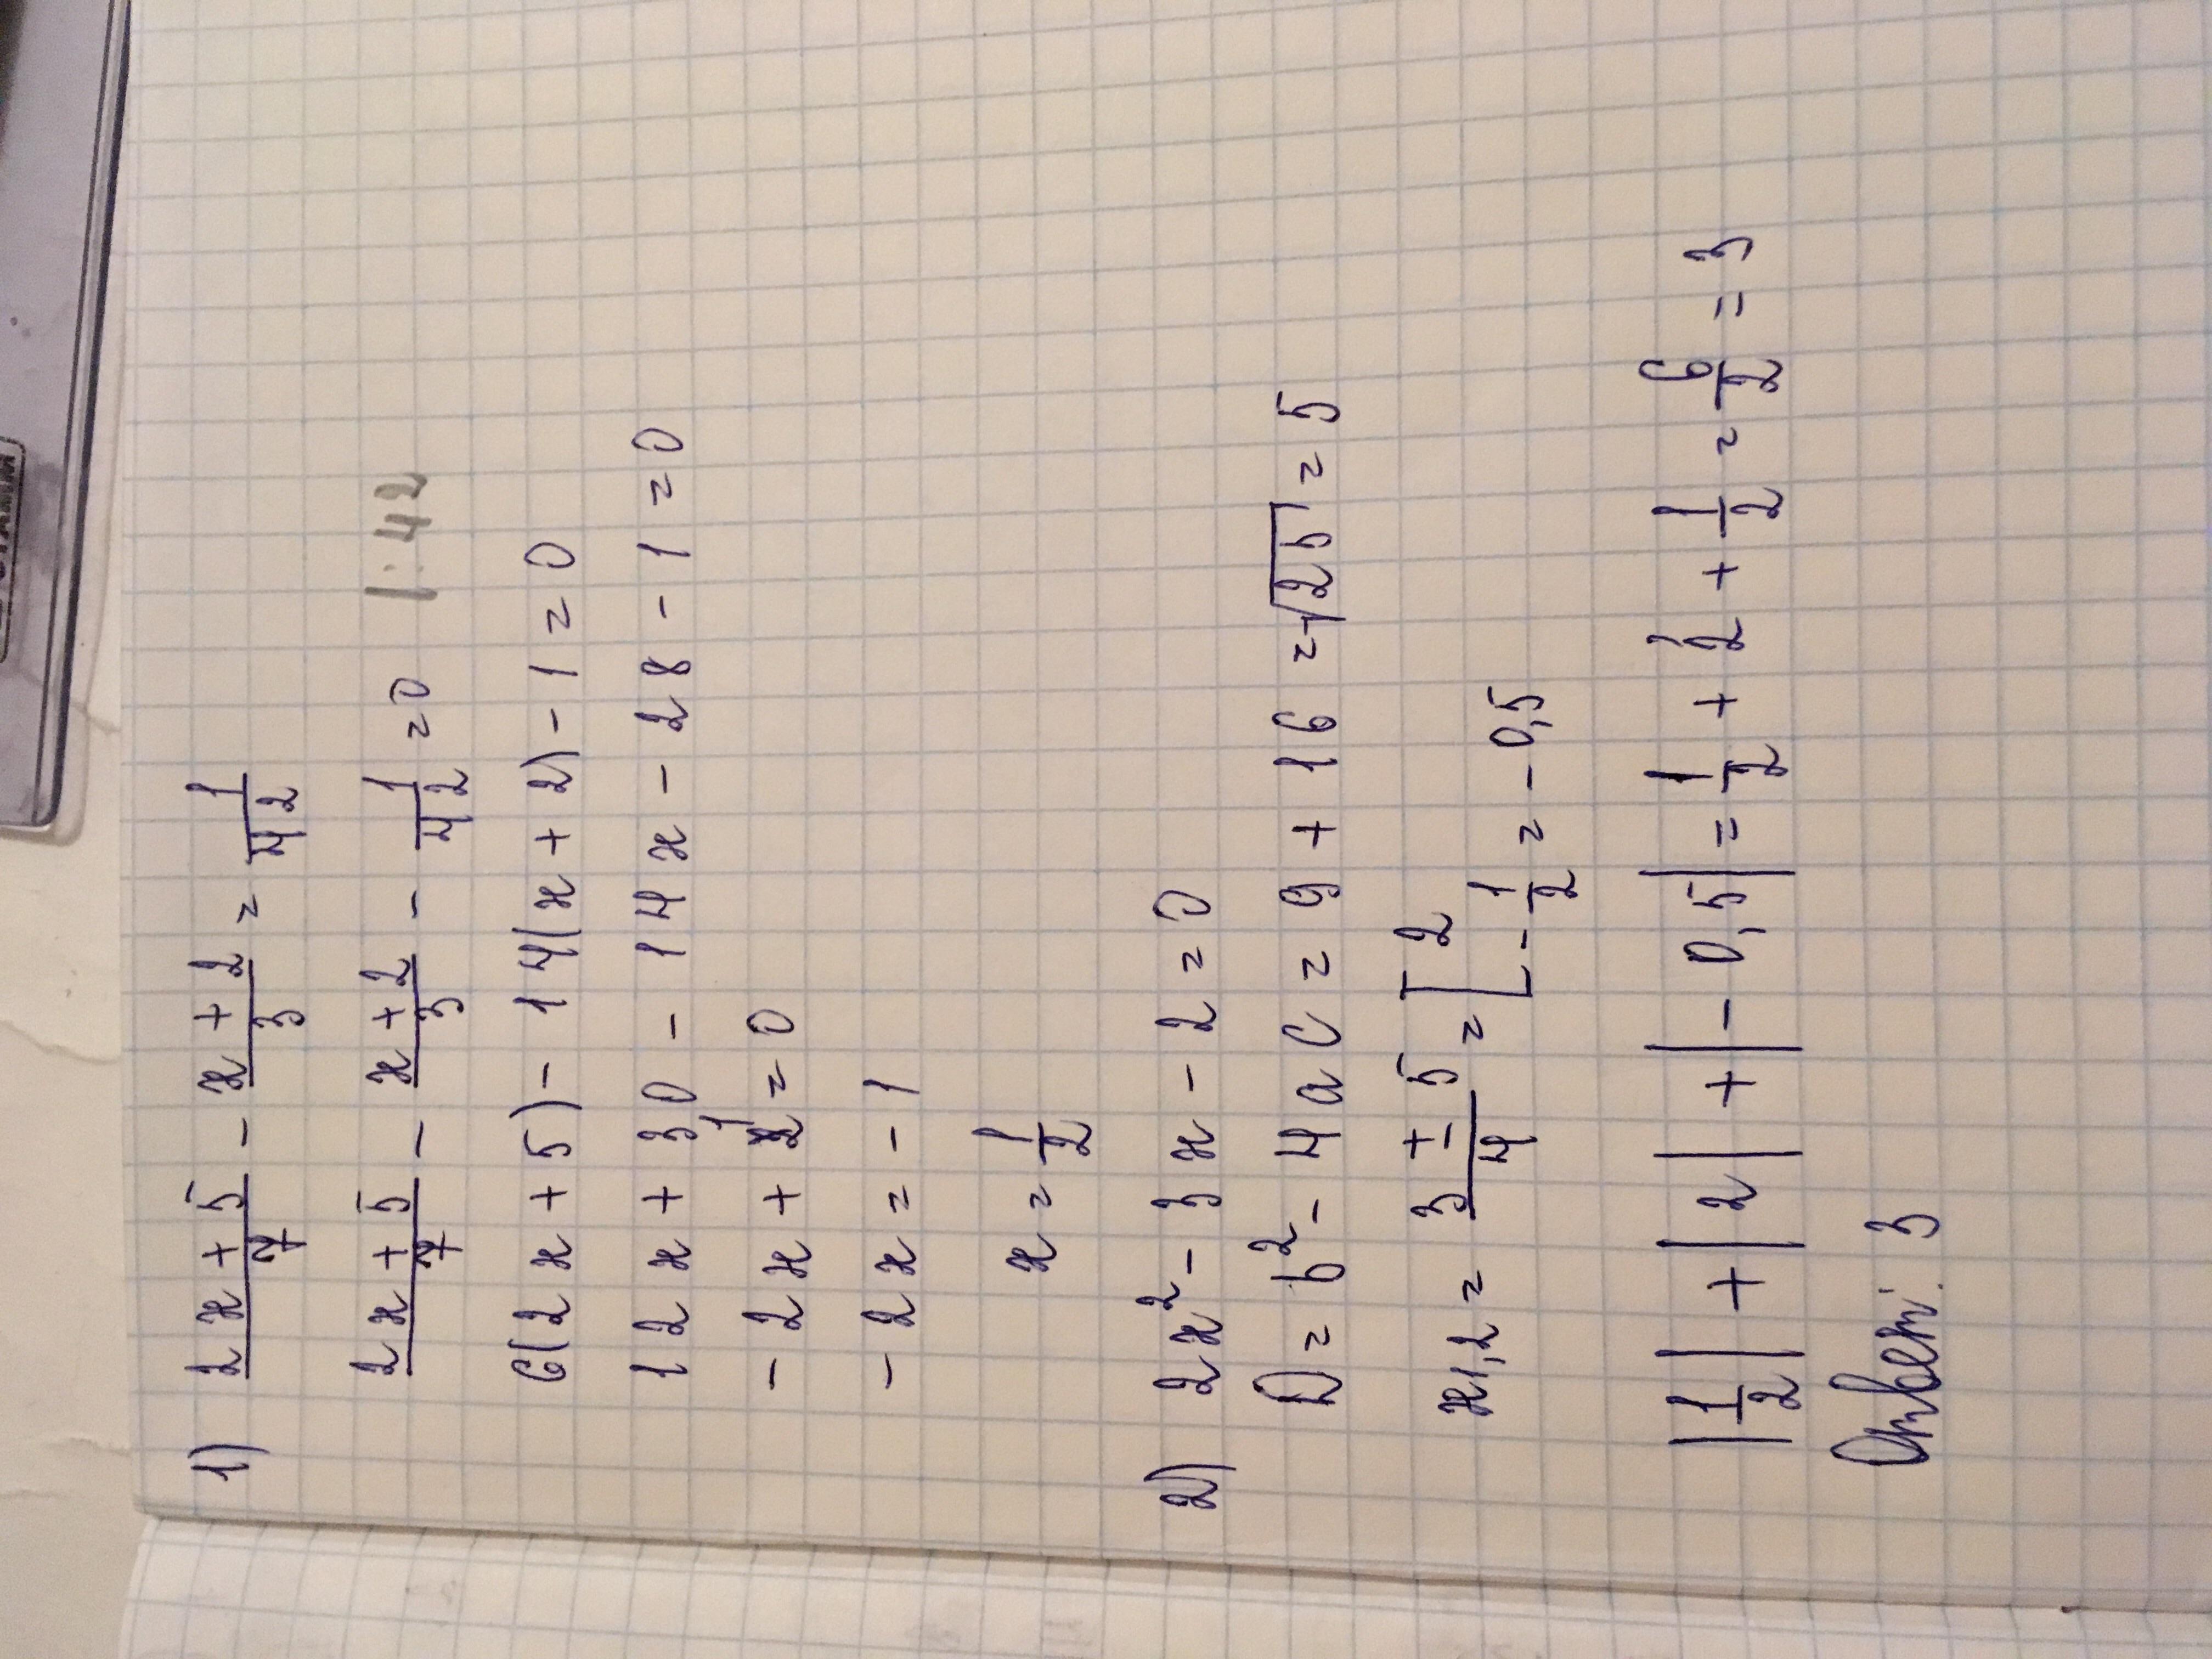 1) (2x+5)/7 - (x+2)/3 = 1/42
(2x+5)/7 - (x+2)/3 - 1/42 = 0 |·42
6(2x+5) - 14(x+2) - 1 = 0
12x + 30 - 14x - 28 - 1 = 0
-2x + 1 = 0
-2x = -1
x = 1/2
2) 2x² - 3x - 2 = 0
D = b² - 4ac = 9 + 16 = √25 = 5
x1,2 = (3 ± 5)/4 = [ 2
-1/2 = -0,5
|1/2| + |2| + |-0,5| = 1/2 + 2 + 1/2 = 6/2 = 3
Ответ: 3